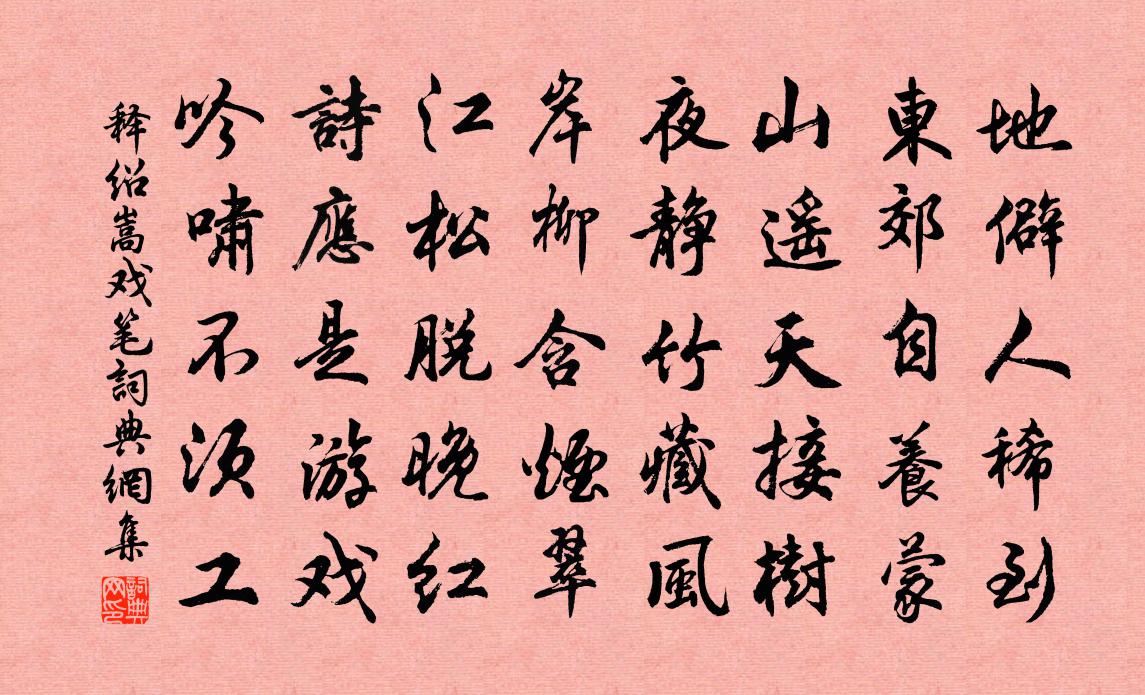 地僻人稀到
東郊自養蒙
山遥天接樹
夜静竹藏風
岸柳含煙翠
江松脱晚红
詩應是游戏
吟嘯不须工
释绍嵩戏笔詞典網集
詞典网印